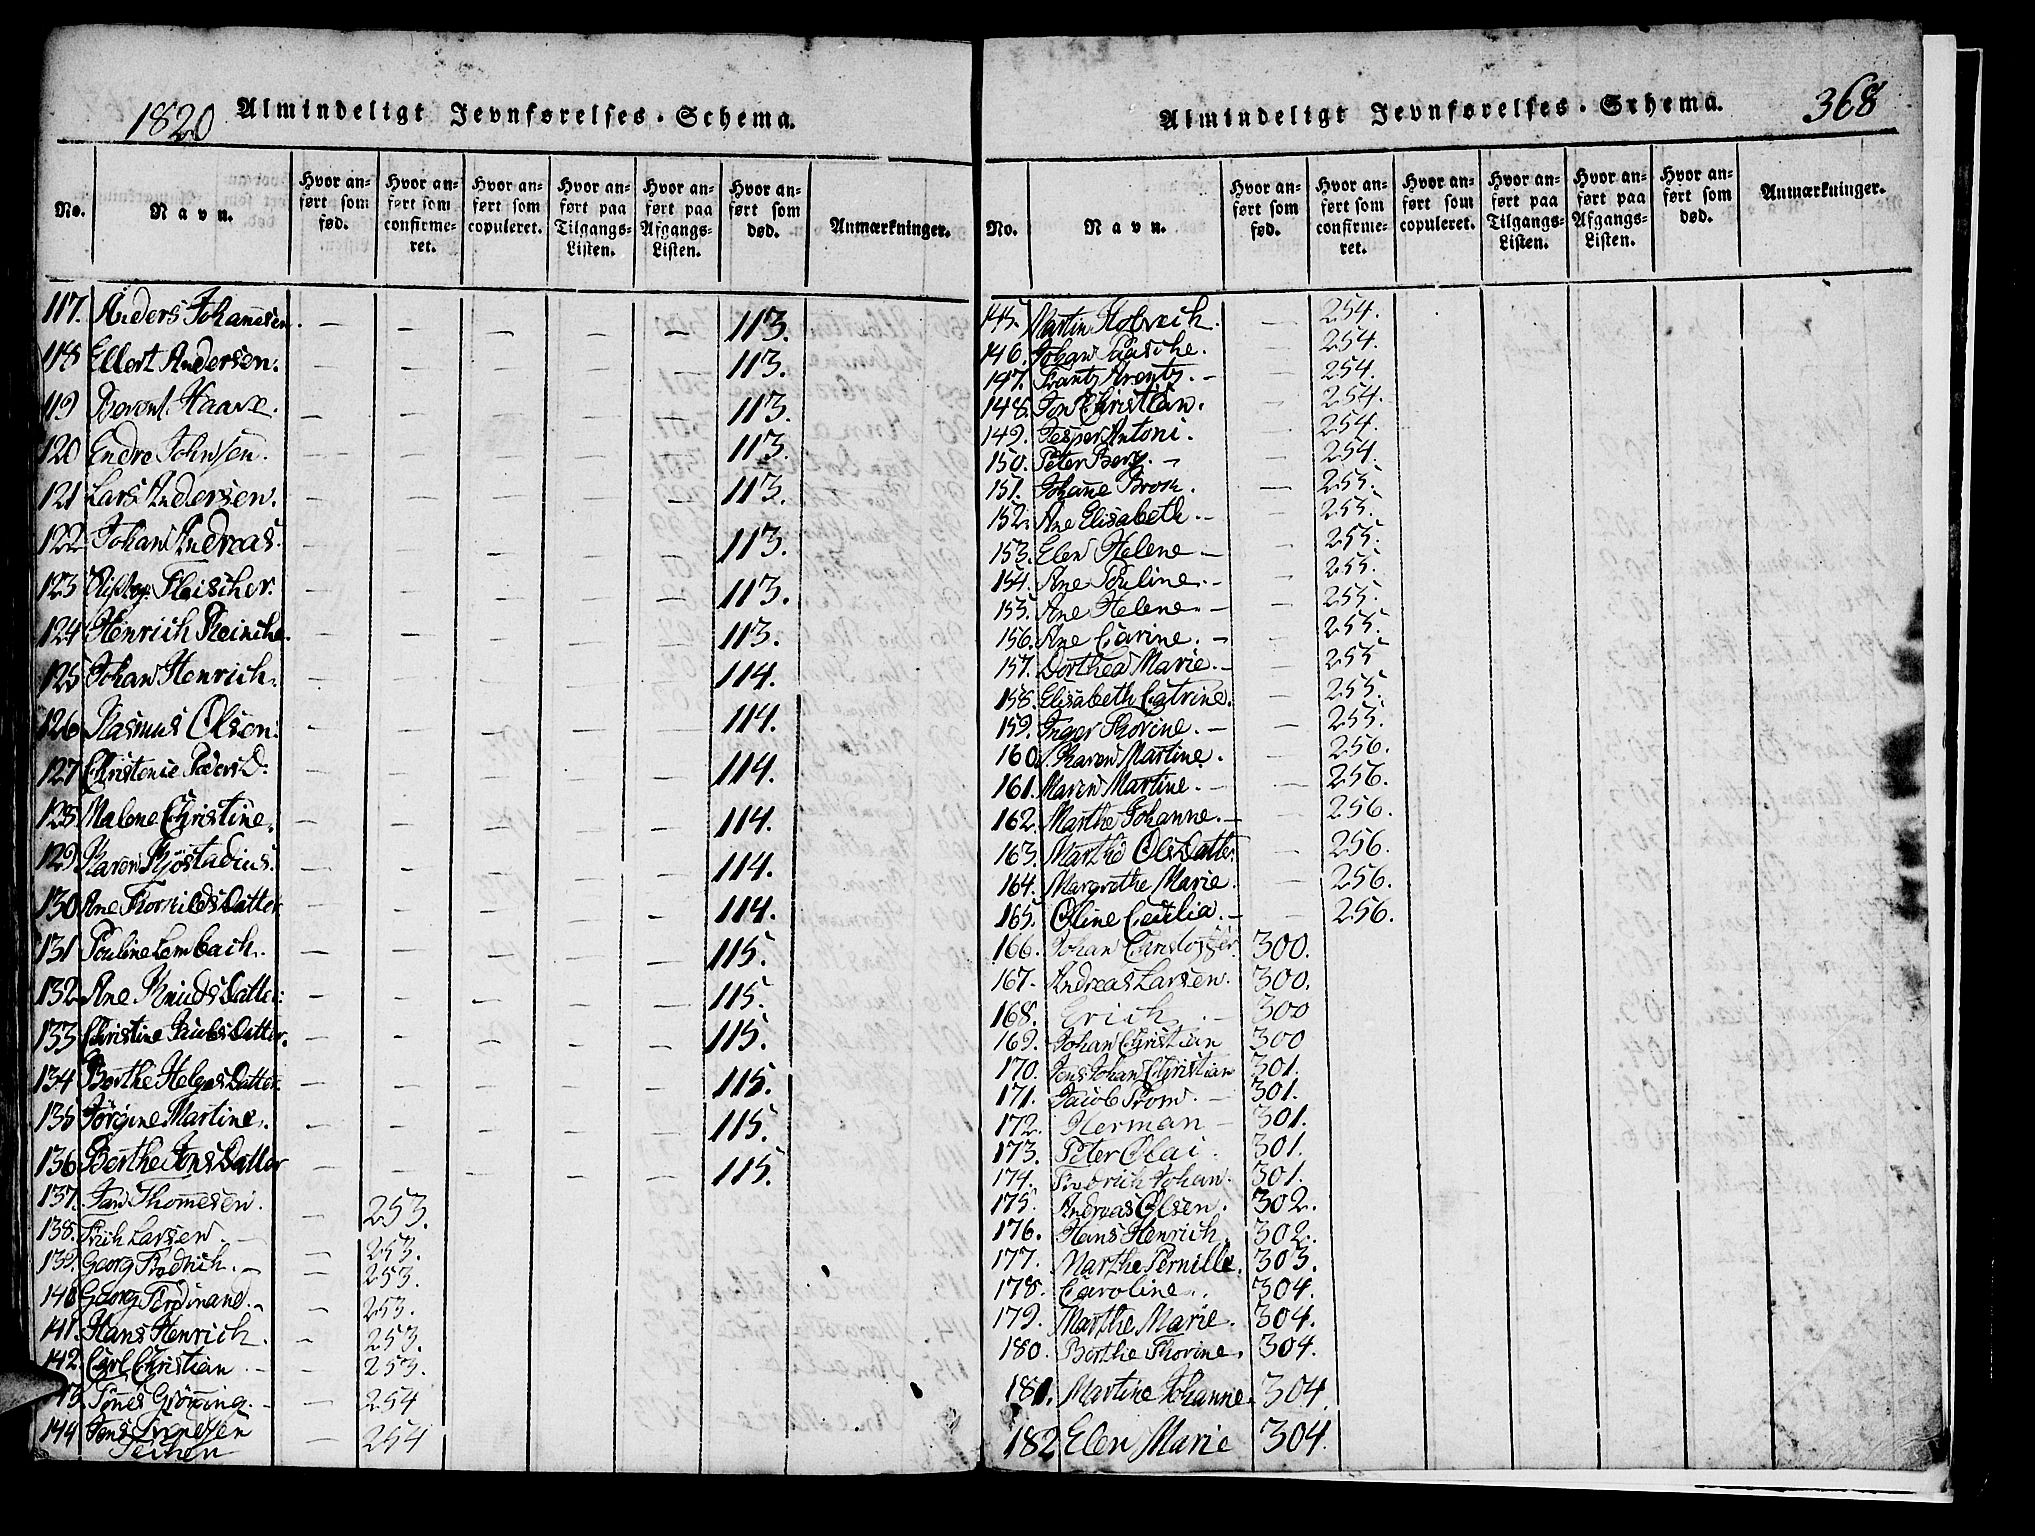 1820 Almindeligt Jevnførelses-Schema.
No. Navn. Hvor anført som fød. Hvor anført som confirmeret. Hvor anført som copuleret. Hvor anført paa Tilgangs-Listen. Hvor anført paa Afgangs-Listen. Hvor anført som død. Anmærkninger.
117. Anders Johannesen. — — — — — 113.
118 Ellert Andersen. — — — — — 113.
119 Berent Haave. — — — — — 113.
120 Endre Johnsen. — — — — — 113.
121 Lars Andersen. — — — — — 113.
122 Johan Andreas. — — — — — 113.
123 Fleischer. — — — — — 113.
124 Henrich Reincke. — — — — — 113.
125 Johan Henrich. — — — — — 114.
126 Rasmus Olsen. — — — — — 114.
127 Christenie Pedersd. — — — — — 114.
128 Malene Christine. — — — — — 114.
129 Karen Kjøstadius. — — — — — 114.
130 Ane ThorkildsDatter — — — — — 114.
131 Pouline Lembach. — — — — — 115.
132 Ane KnudsDatter. — — — — — 115.
133 Christine JacobsDatter. — — — — — 115.
134 Berthe HelgesDatter. — — — — — 115.
135 Jørgine Martine. — — — — — 115.
136 Berthe JonsDatter — — — — — 115.
137. Jan Thommesen. — 253.
138. Erich Larsen. — 253.
139. Georg Fredrich. — 253.
140 Georg Ferdinand. — 253.
141. Hans Henrich. — 253.
142. Carl Christian. — 253.
143. Tönnes Grönning. — 254
144 Jens — 254
368
Almindeligt Jevnførelses-Schema.
No. Navn. Hvor anført som fød. Hvor anført som confirmeret. Hvor anført som copuleret. Hvor anført paa Tilgangs-Listen. Hvor anført paa Afgangs-Listen. Hvor anført som død. Anmærkninger.
145. Martin — 254.
146. Johan Paasche. — 254.
147. Frantz Arentz. — 254.
148. Jon Christian. — 254.
149. Jesper Antoni. — 254.
150. Peter Berg. — 254.
151. Johane Brock. — 255.
152. Ane Elisabeth. — 255.
153. Elen Helene — 255.
154. Ane Pouline. — 255.
155. Ane Helene. — 255.
156. Ane Carine. — 255.
157. Dorthea Marie. — 255
158. Elisabeth Catrine. — 255.
159. Inger Thorine. — 255.
160. Karen Martine. — 256.
161. Maren Martine. — 256.
162. Marthe Johanne. — 256.
163. Marthe OlsDatter. — 256.
164. Margrethe Marie. — 256.
165. Oline Cecilia. — 256.
166. Johan Christopher. 300.
167. Andreas Larsen. 300.
168. Erich. — 300
169. Johan Christian 300
170. Jens Johan Christian 301.
171. Jacob Prom. — 301.
172. Herman — 301.
173. Peter Olai. 301.
174. Fredrich Johan. 301.
175. Andreas Olsen. 302.
176. Hans Henrich. 302.
177. Marthe Pernille. 303.
178. Caroline. 304.
179. Marthe Marie. 304.
180. Berthe Thorine. 304.
181. Martine Johanne. 304.
182 Elen Marie 304.